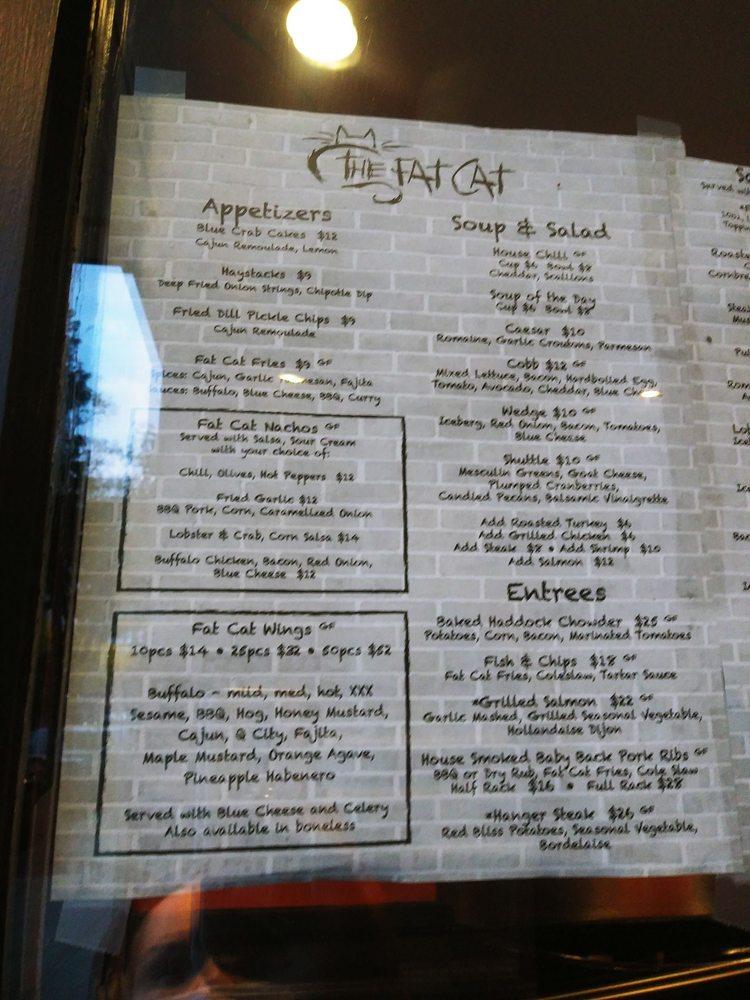 THE FAT CAT
Appetizers
Blue Crab Cakes $12
Cajun Remoulade, Lemon
Haystacks $9
Deep Fried Onion Strings, Chipotle Dip
Fried Dill Pickle Chips $9
Cajun Remoulade
Fat Cat Fries $9 GF
Spices: Cajun, Garlic Parmesan, Fajita
Sauces: Buffalo, Blue Cheese, BBQ, Curry
Fat Cat Nachos GF
Served with Salsa, Sour Cream
with your choice of:
Chili, Olives, Hot Peppers $12
Fried Garlic $12
BBQ Pork, Corn, Caramelized Onion
Lobster & Crab, Corn Salsa $14
Buffalo Chicken, Bacon, Red Onion,
Blue Cheese $12
Fat Cat Wings GF
10pcs $14 • 25pcs $32 • 50pcs $52
Buffalo - mild, med, hot, XXX
Sesame, BBQ, Hog, Honey Mustard,
Cajun, Q City, Fajita,
Maple Mustard, Orange Agave,
Pineapple Habenero
Served with Blue Cheese and Celery
Also available in boneless
Soup & Salad
House Chili GF
Cup $6 Bowl $8
Cheddar, Scallions
Soup of the Day
Cup $6 Bowl $8
Caesar $10
Romaine, Garlic Croutons, Parmesan
Cobb $12 GF
Mixed Lettuce, Bacon, Hardboiled Egg,
Tomato, Avocado, Cheddar, Blue
Wedge $10 GF
Iceberg, Red Onion, Bacon, Tomatoes,
Blue Cheese
Shuttle $10 GF
Mesculin Greens, Goat Cheese,
Plumped Cranberries,
Candied Pecans, Balsamic Vinaigrette
Add Roasted Turkey $6
Add Grilled Chicken $6
Add Steak $8 • Add Shrimp $10
Add Salmon $12
Entrees
Baked Haddock Chowder $25 GF
Potatoes, Corn, Bacon, Marinated Tomatoes
Fish & Chips $18 GF
Fat Cat Fries, Coleslaw, Tartar Sauce
*Grilled Salmon $22 GF
Garlic Mashed, Grilled Seasonal Vegetable,
Hollandaise Dijon
House Smoked Baby Back Pork Ribs GF
BBQ or Dry Rub, Fat Cat Fries, Cole Slaw
Half Rack $16 • Full Rack $28
*Hanger Steak $26 GF
Red Bliss Potatoes, Seasonal Vegetable,
Bordelaise